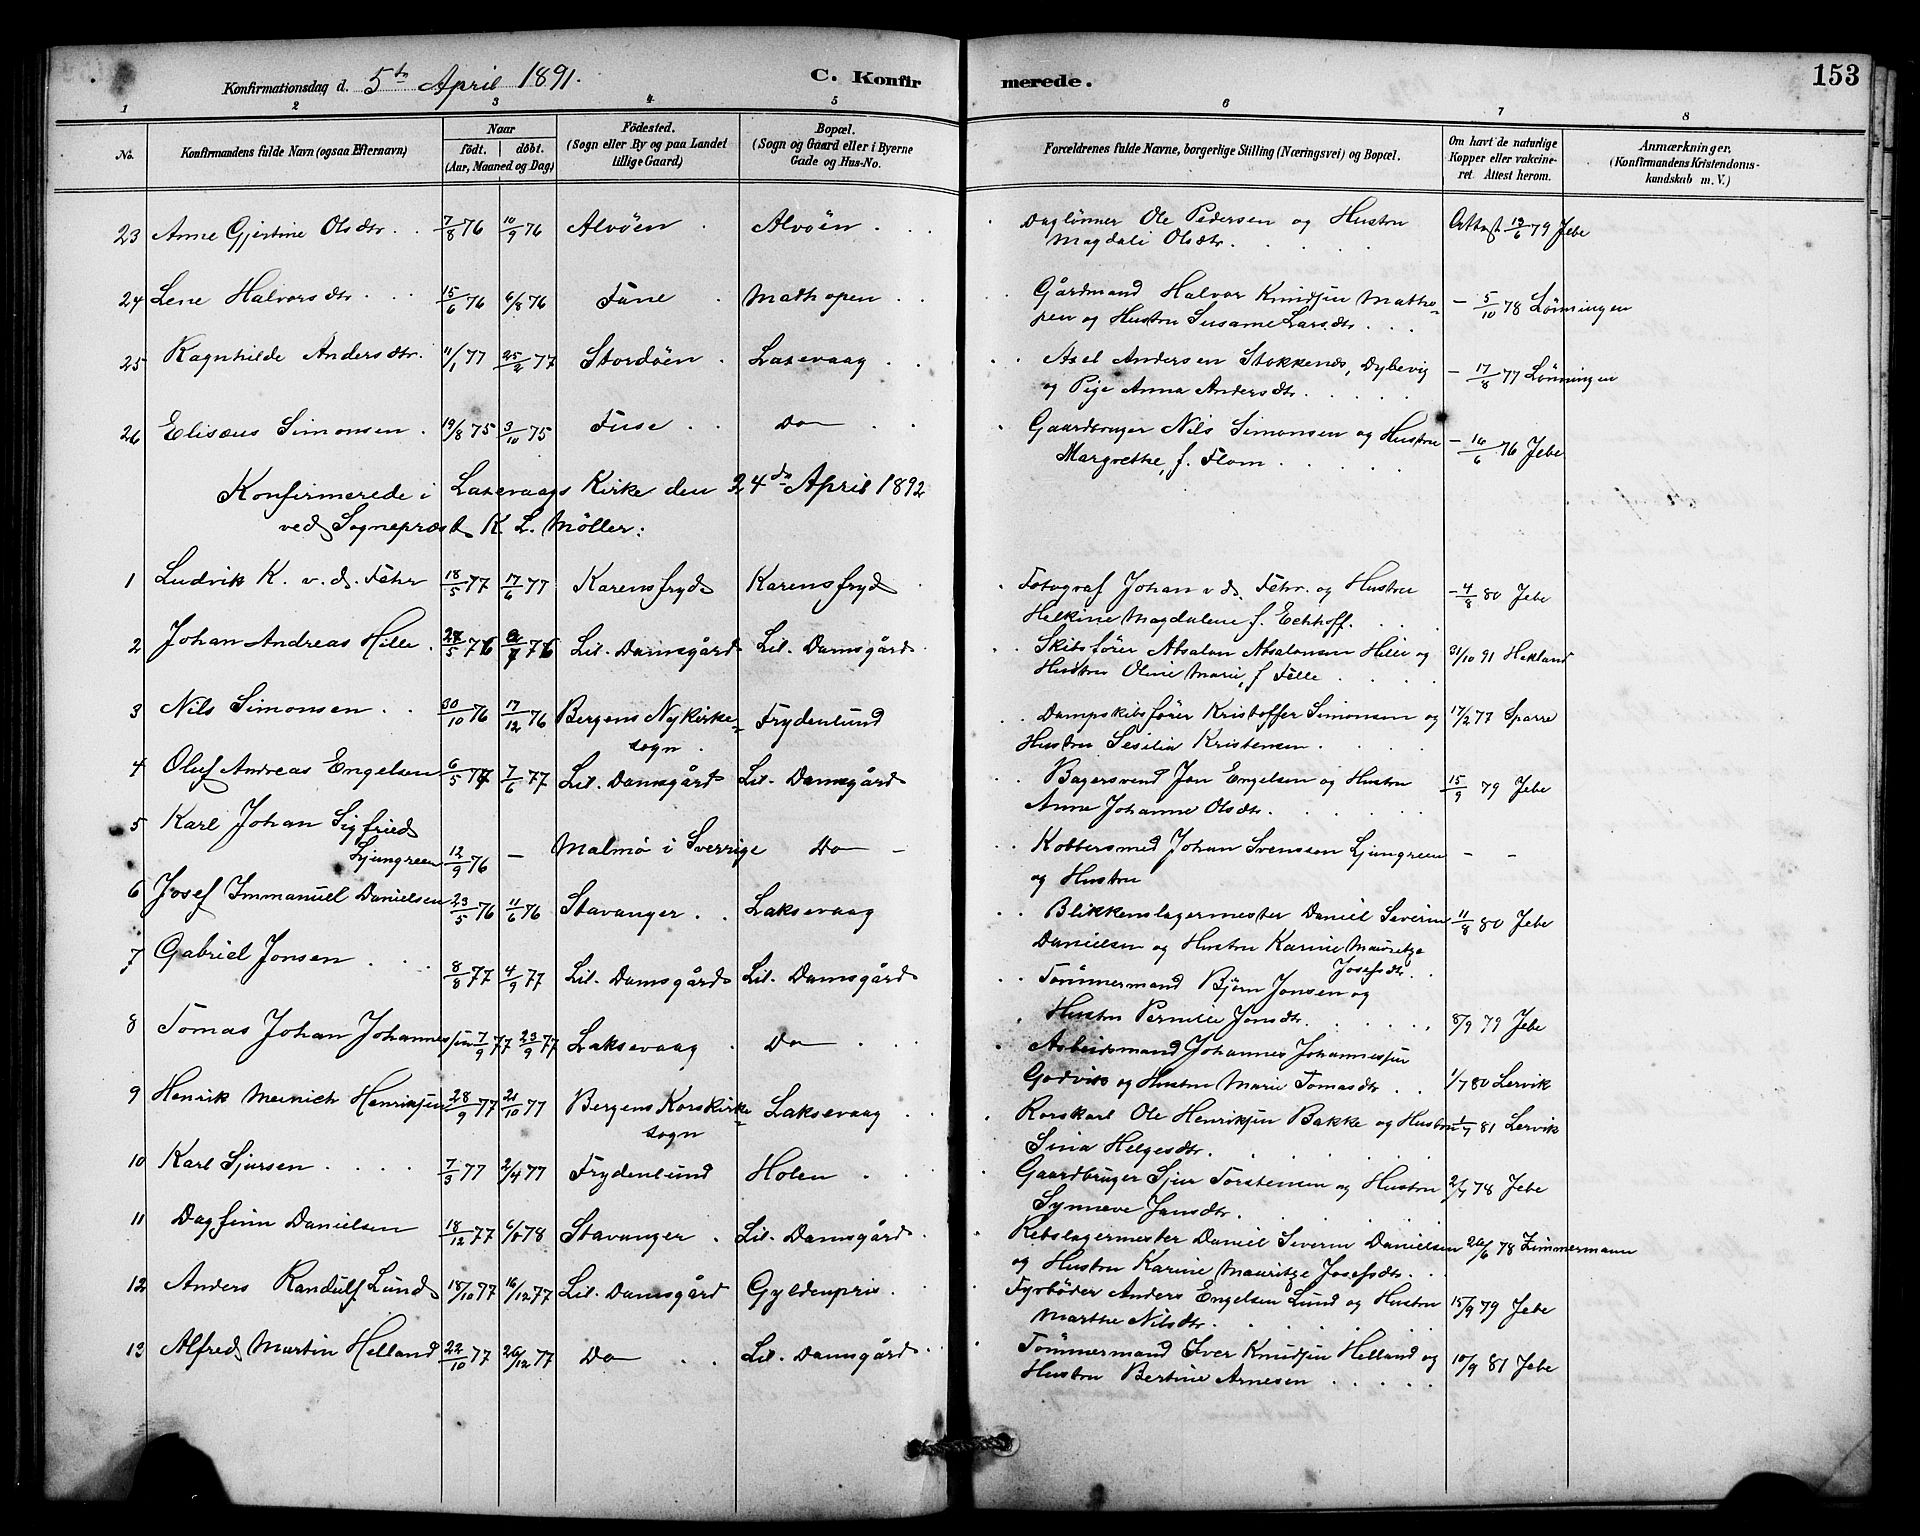 Konfirmationsdag d. 5te April 1891. C. Konfirmerede. 153
1 2 3 4 5 6 7 8
No. Konfirmandens fulde Navn (ogsaa Efternavn) Naar født. døbt. (Aar, Maaned og Dag) Födested. (Sogn eller By og paa Landet tillige Gaard) Bopæl. (Sogn og Gaard eller i Byerne Gade og Hus-No. Forældrenes fulde Navne, borgerlige Stilling (Næringsvei) og Bopæl. Om havt de naturlige Kopper eller vakcineret. Attest herom. Anmærkninger. (Konfirmandens Kristendomskundskab m. V.)
23 Anne Gjertine Olsdtr. 7/8 76 10/9 76 Alvöen Alvöen Daglönner Ole Pedersen og Hustru
Magdali Olsdtr. Attest 13/6 79 Jebe
24 Lene Halvorsdtr. 15/6 76 6/8 76 Fane Mathopen Gårdmand Halvor Knudsen Matho-
pen og Hustru Susanne Larsdtr. - 5/10 78 Lönningen
25 Ragnhilde Andersdtr. 11/1 77 25/2 77 Stordöen Laxevaag Axel Andersen Stokkenes, Dybevig
og Pige Anna Andersdtr. - 17/8 77 Lönningen
26 Elisæus Simonsen. 19/8 75 3/10 75 Fuse Do Gaardbruger Nils Simonsen og Hustru
Margrethe, f. Flom - 16/6 76 Jebe
Konfirmerede i Laxevaags Kirke den 24de April 1892
ved Sognepræst K. L. Möller:
1 Ludvik K. v. d. Fehr 18/5 77 17/6 77 Karensfryd Karensfryd Fotograf Johan v d. Fehr. og Hustru
Helkine Magdalene f. Echhoff. - 4/8 80 Jebe
2 Johan Andreas Hille. 27/5 76 2/7 76 Lil. Damsgård Lil. Damsgård Skibsförer Absalon Absalonsen Hille og
Hustru Oline Marie, f Fille 31/10 91 Hekland
3 Nils Simonsen 30/10 76 17/12 76 Bergens Nykirke-
sogn. Frydenlund Dampskibsförer Kristoffer Simonsen og
Hustru Sesilia Kristensen 17/2 77 Sparre
4 Oluf Andreas Engelsen 6/5 77 7/6 77 Lil. Damsgård Lil. Damsgård Bagersvend Jon Engelsen og Hustru
Anne Johanne Olsdtr. 15/9 79 Jebe
5 Karl Johan Sigfried
Ljungreen 12/9 76 — Malmö i Sverrige Do - Kobbersmed Johan Svensson Ljungreen
og Hustru - -
6 Josef Immanuel Danielsen 23/5 76 11/6 76 Stavanger Laksevaag Blikkenslagermester Daniel Severin
Danielsen og Hustru Karine Mauritze
Josefsdtr. 11/8 80 Jebe
7 Gabriel Jonsen 8/8 77 4/9 77 Lil. Damsgård Lil. Damsgård Tömmermand Björn Jonsen og
Hustru Pernille Jonsdtr. 8/9 79 Jebe
8 Tomas Johan Johannessen 7/9 77 23/9 77 Laksevaag Do Arbeidsmand Johannes Johannessen
Godvik og Hustru Marie Tomasdtr. 1/7 80 Lervik
9 Henrik Meinich Henriksen 28/9 77 21/10 77 Bergens Korskirke-
sogn Laksevaag Rorskarl Ole Henriksen Bakke og Hustru
Sina Helgesdtr. 1/7 81 Lervik
10 Karl Sjursen 7/3 77 2/4 77 Frydenlund Holen Gaardbruger Sjur Torstensen og Hustru
Synneve Jansdtr. 2/7 78 Jebe
11 Dagfinn Danielsen 18/12 77 78 Stavanger Lil. Damsgård Rebslagermester Daniel Severin Danielsen
og Hustru Karine Mauritze Josefsdtr. 26/6 78 Zimmermann
12 Anders Randulf Lund 18/10 77 16/12 77 Lil. Damsgård Gyldenpris Fyrböder Anders Engelsen Lund og Hustru
Marthe Nilsdtr. 15/9 79 Jebe
13 Alfred Martin Helland 22/10 77 26/12 77 Do Lil. Damsgård Tömmermand Iver Knudsen Helland og
Hustru Bertine Arnesen 10/9 81 Jebe